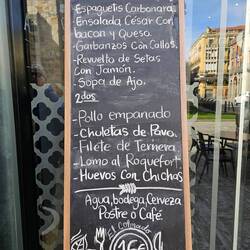 -Espaguetis Carbonara.
-Ensalada César Con
bacon y Queso.
-Garbanzos Con Callos.
-Revuelto de Setas
Con Jamón.
-Sopa de Ajo.
2dos
-Pollo empanado
-Chuletas de Pavo.
-Filete de Ternera
-Lomo al Roquefort
-Huevos Con Chichas
Agua, bodega, Cerveza
Postre o Café.